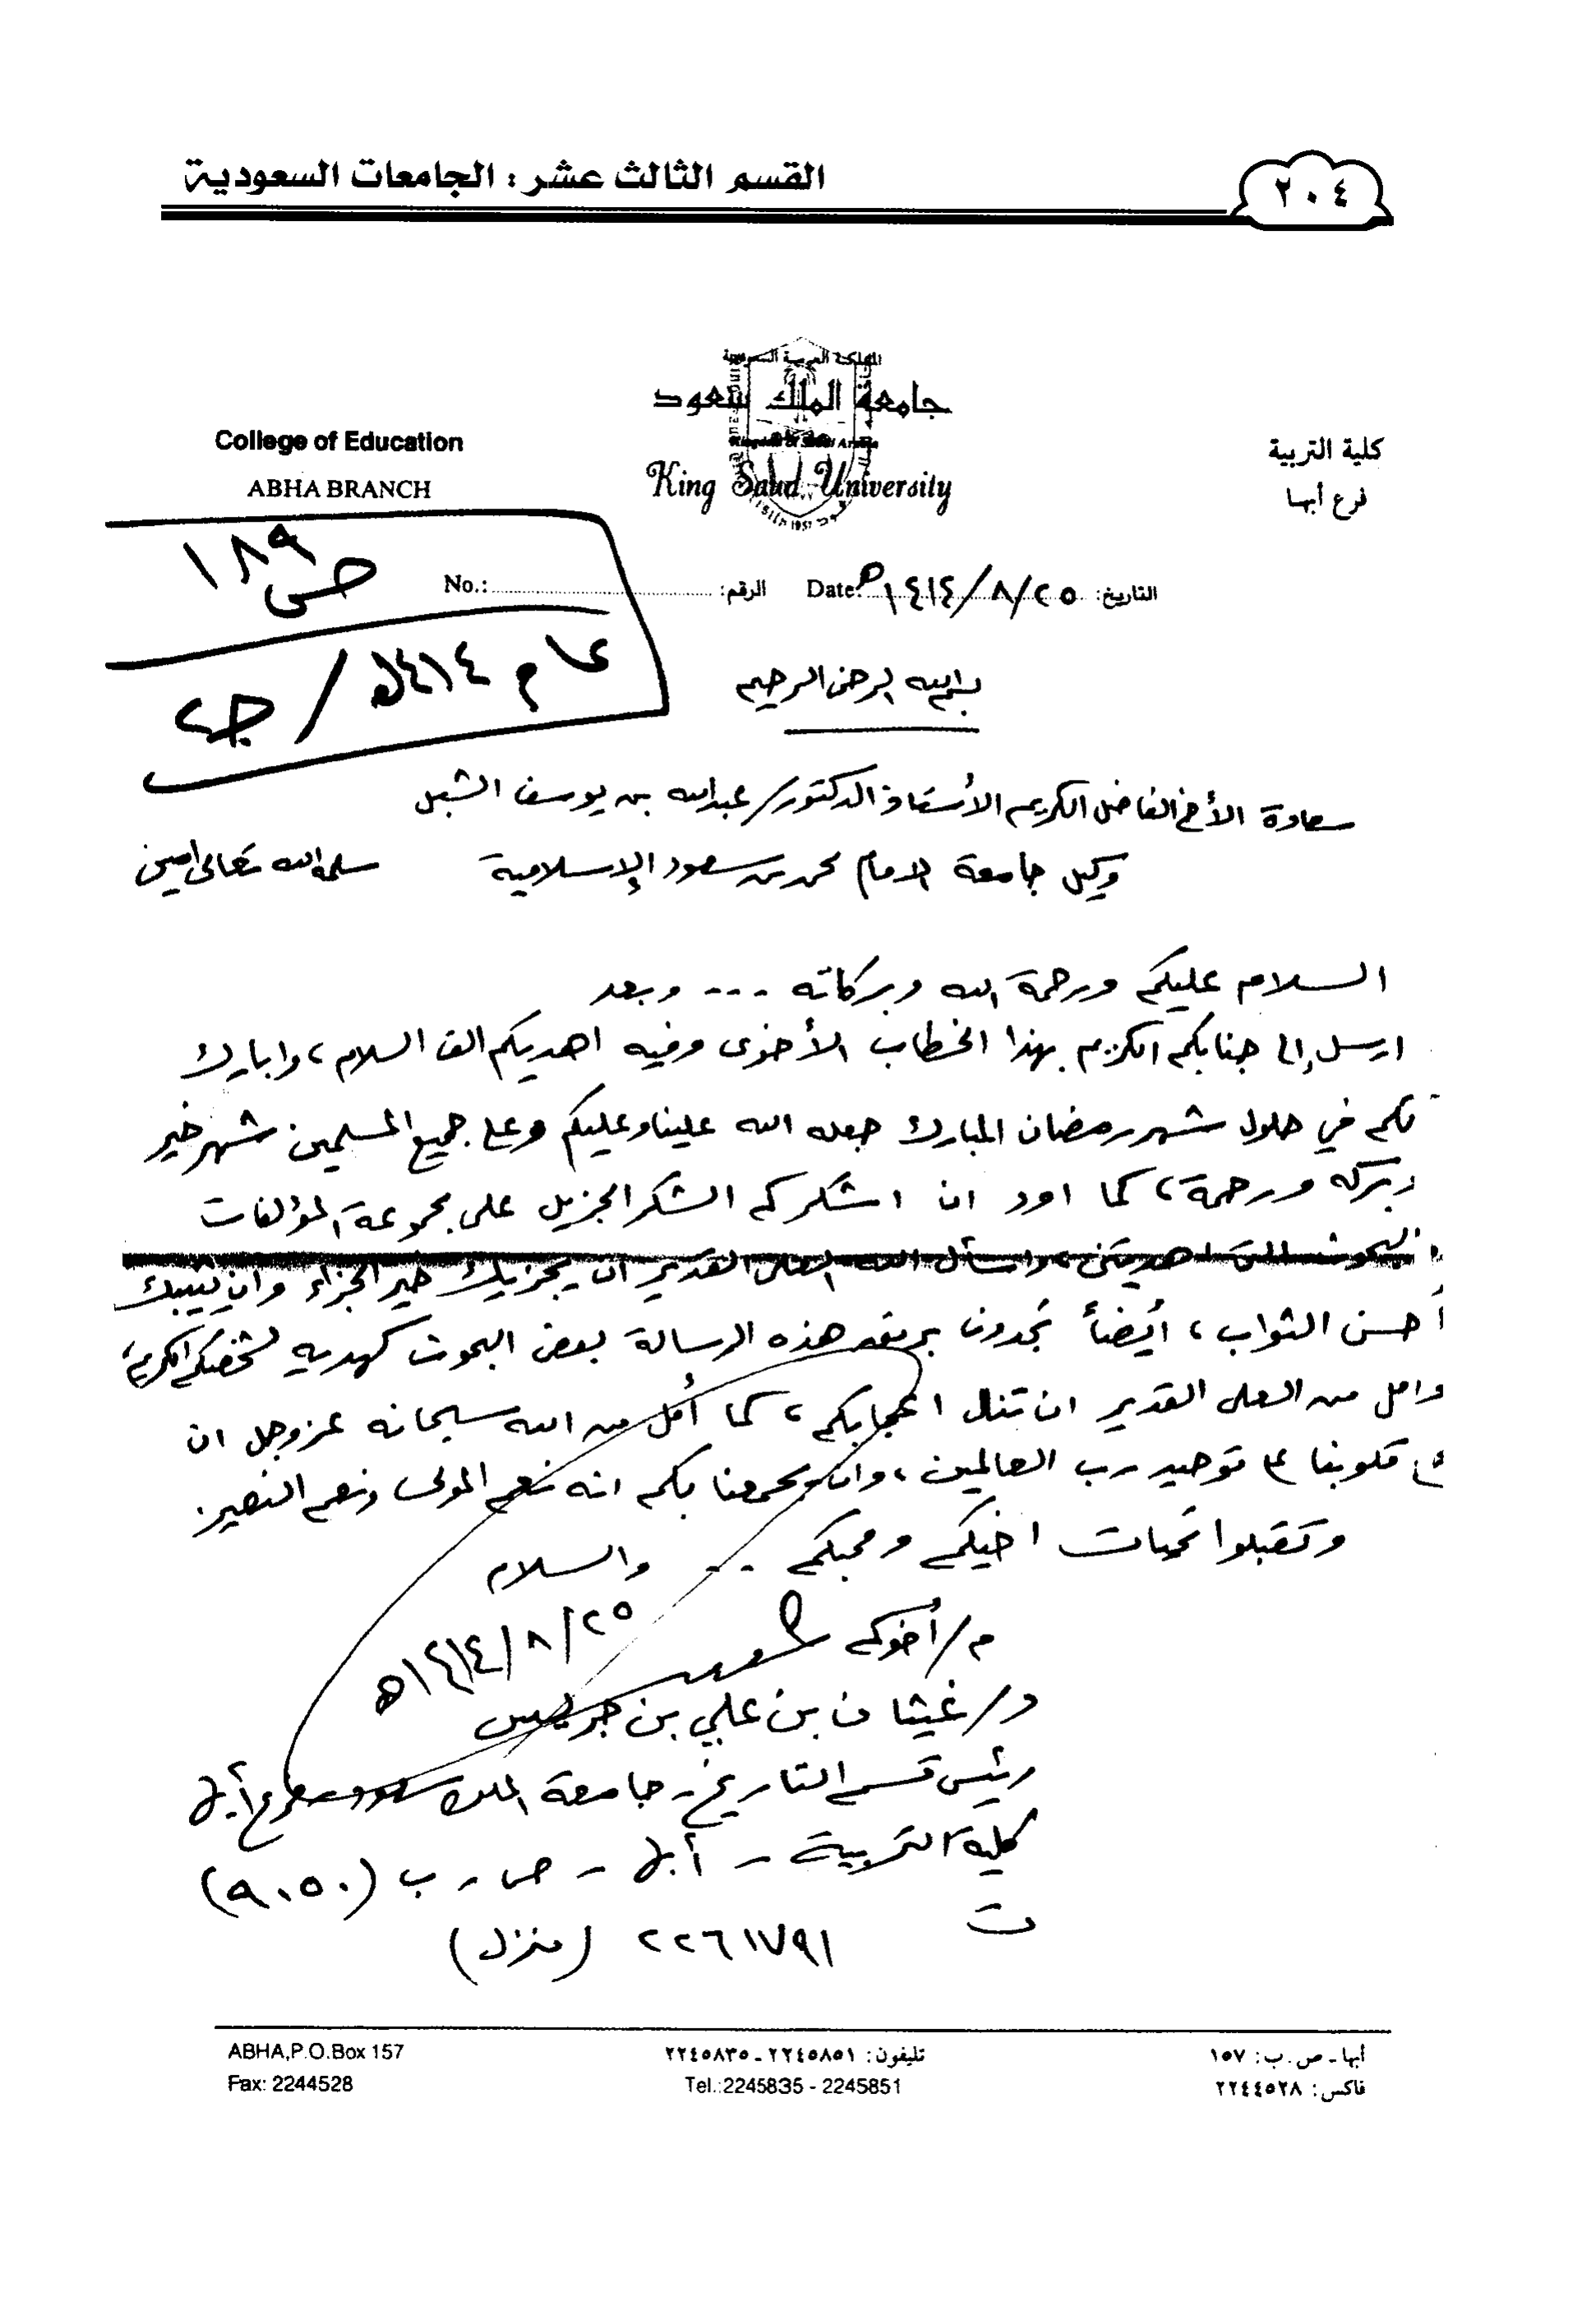 القسم الثالث عشر : الجامعات السعودية
٢٠٤
المملكة العربية السعودية
جامعة الملك سعود
King Saud University
College of Education
ABHA BRANCH
كلية التربية
فرع أبها
التاريخ: ١٤١٤/٨/٢٥هـ Date:
الرقم: No.:
ص ١٨٩
عام ١٤١٤هـ / ج٢
بسم الله الرحمن الرحيم
سعادة الأخ الفاضل الكريم الأستاذ الدكتور/ عبدالله بن يوسف الشبل
وكيل جامعة الامام محمد بن سعود الإسلامية سلمه الله تعالى امين
السلام عليكم ورحمة الله وبركاته ... وبعد
ارسل إلى جنابكم الكريم بهذا الخطاب الأخوى وفيه اهديكم الف السلام، وابارك
لكم في حلول شهر رمضان المبارك جعله الله علينا وعليكم وعلى جميع المسلمين شهر خير
وبركه ورحمة، كما اود ان اشكركم الشكر الجزيل على مجموعة المؤلفات
والبحوث التي اهديتني، واسأل الله العلى القدير ان يجزيك خير الجزاء وان يثيبك
أحسن الثواب، أيضاً تجدون برفقه هذه الرسالة بعض البحوث كهديه لشخصكم الكريم،
وامل من العلى القدير ان تنال اعجابكم، كما أمل من الله سبحانه عز وجل ان
قلوبنا على توحيد رب العالمين، وان يجمعنا بكم انه نعم المولى ونعم النصير.
وتقبلوا تحيات اخيكم ومحبكم ... والسلام
م/ أخوكم
١٤١٤/٨/٢٥هـ
د/ غيثان بن علي بن جريس
رئيس قسم التاريخ - جامعة الملك سعود - فرع أبها
كلية التربية - أبها - ص . ب (٩٠٥٠)
ت ٢٢٦١٧٩١ (منزل)
أبها - ص . ب : ١٥٧
فاكس : ٢٢٤٤٥٢٨
تليفون : ٢٢٤٥٨٥١ - ٢٢٤٥٨٣٥
Tel.:2245835 - 2245851
ABHA,P.O.Box 157
Fax: 2244528